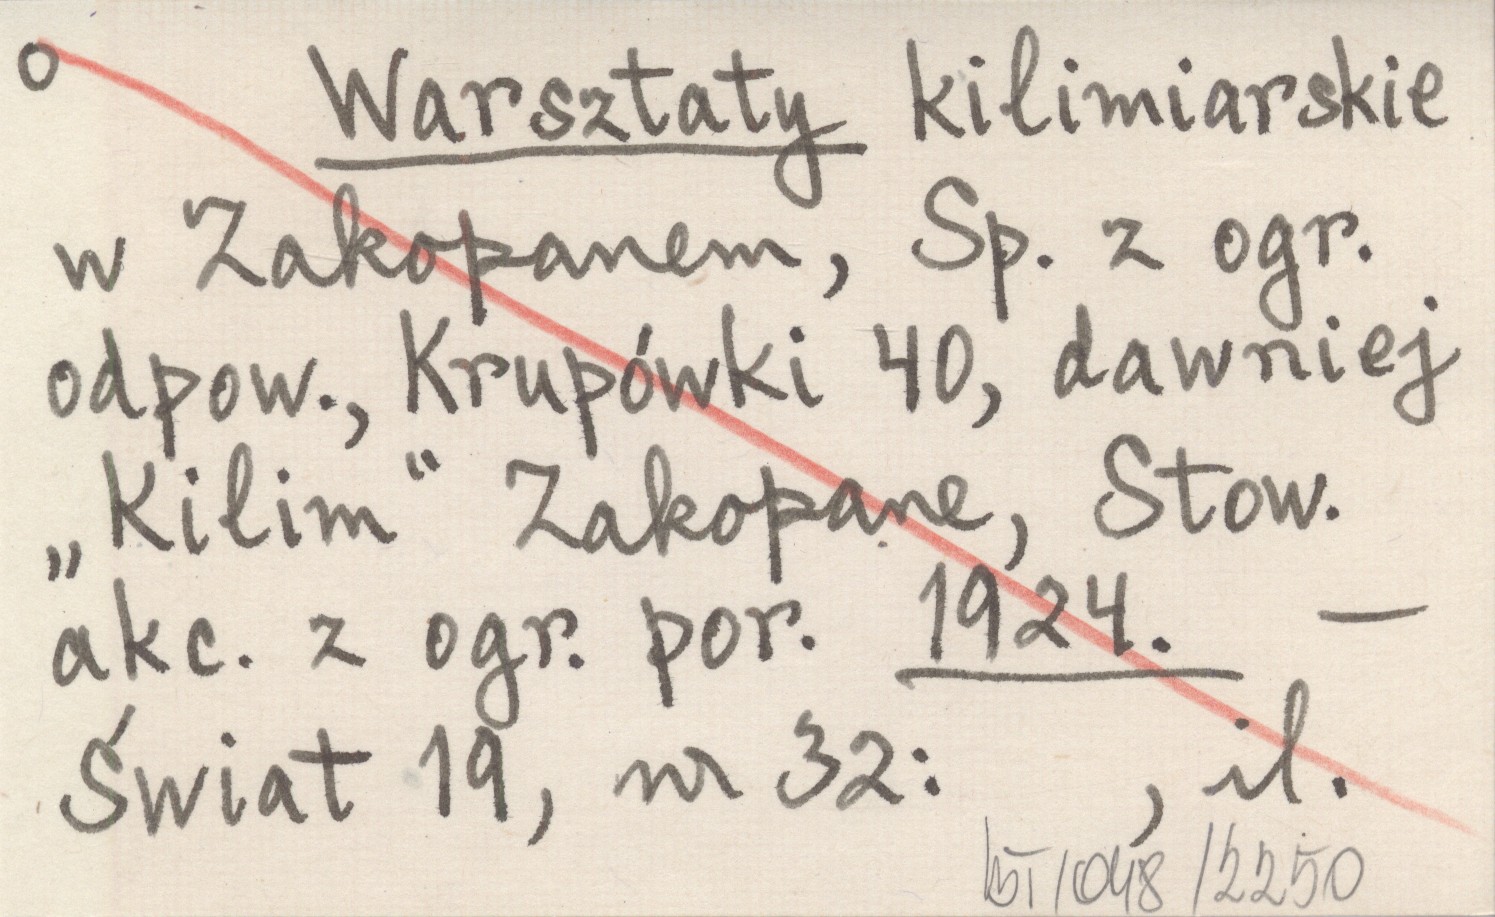 o Warsztaty kilimiarskie
w Zakopanem, Sp. z ogr.
odpow., Krupówki 40, dawniej
„Kilim“ Zakopane, Stow.
akc. z ogr. por. 1924. —
Świat 19, nr 32: , il.
/048/2250